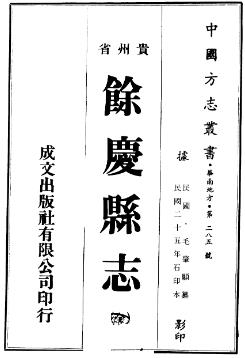 中國方志叢書•華南地方•第二八五號
據
民國•毛肇顯纂
民國二十五年石印本
影印
貴州省
餘慶縣志
成文出版社有限公司印行